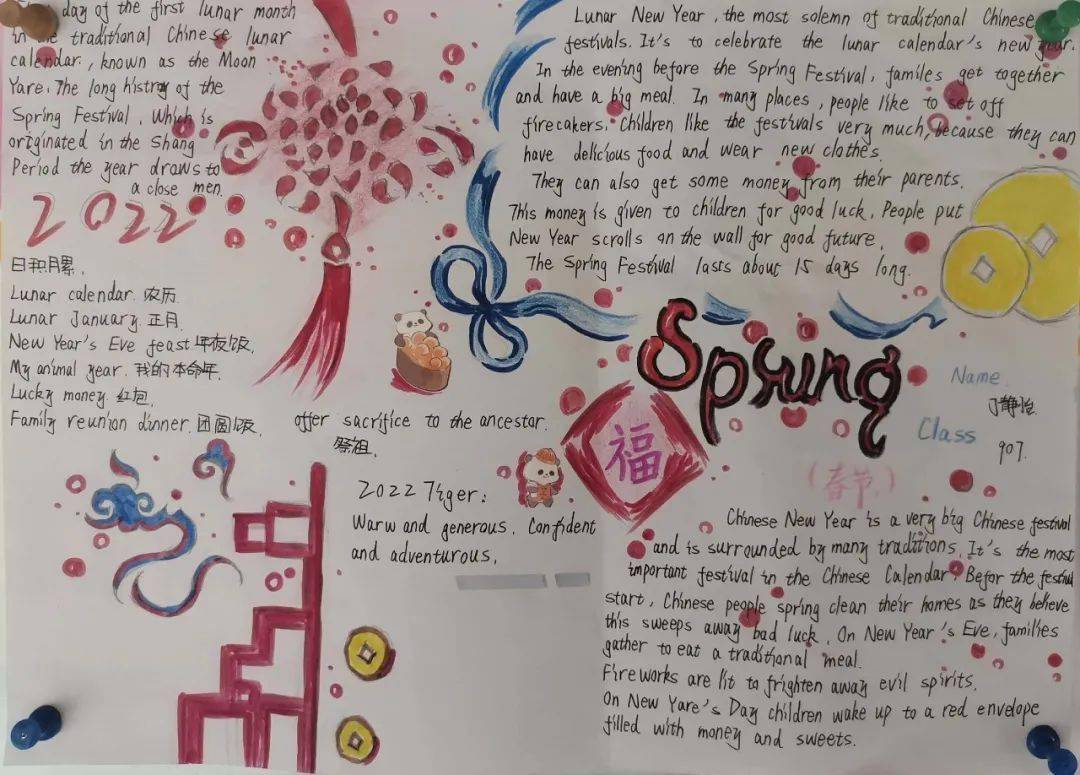 day of the first lunar month
in the traditional Chinese lunar
calendar., known as the Moon
Yare. The long histroy of the
Spring Festival. Which is
originated in the Shang
Period the year draws to
a close men.
2022
日积月累.
Lunar calendar. 农历.
Lunar January. 正月.
New Year's Eve feast 年夜饭.
My animal year. 我的本命年.
Lucky money. 红包.
Family reunion dinner. 团圆饭.
offer sacrifice to the ancestor.
祭祖.
2022 Tiger:
Warw and generous. Confident
and adventurous.
Lunar New Year, the most solemn of traditional Chinese
festivals. It's to celebrate the lunar calendar's new year.
In the evening before the Spring Festival, familes get together
and have a big meal. In many places, people like to set off
firecakers. Children like the festivals very much, because they can
have delicious food and wear new clothes.
They can also get some money from their parents.
This money is given to children for good luck. People put
New Year scrolls on the wall for good future.
The Spring Festival lasts about 15 days long.
Spring
福
(春节.)
Name
静怡
Class
907.
Chinese New Year is a very big Chinese festival
and is surrounded by many traditions. It's the most
important festival in the Chinese Calendar. Befor the festival
start, Chinese people spring clean their homes as they believe
this sweeps away bad luck. On New Year's Eve, families
gather to eat a traditional meal.
Fireworks are lit to frighten away evil spirits.
On New Yare's Day children wake up to a red envelope
filled with money and sweets.